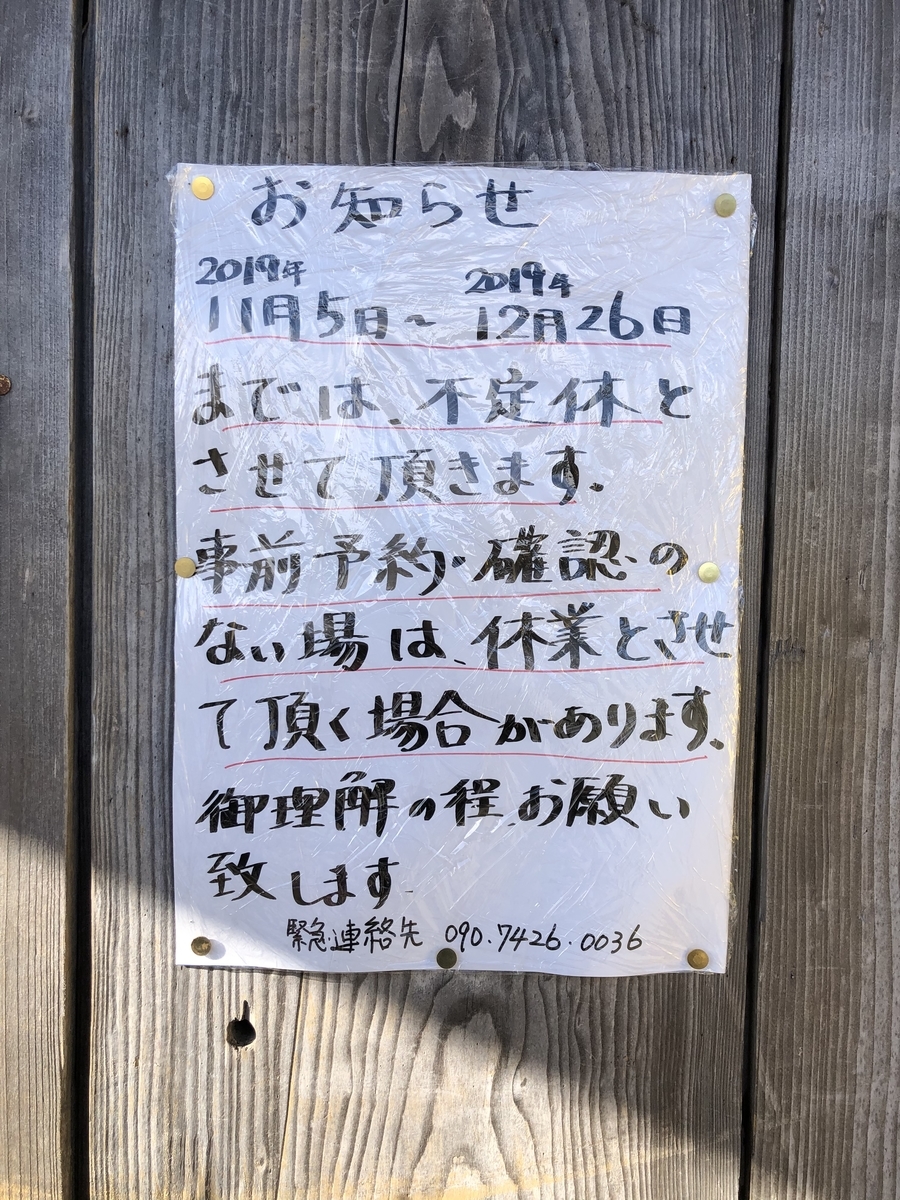 お知らせ
2019年 2019年
11月5日～12月26日
までは、不定休と
させて頂きます.
事前予約・確認の
ない場は、休業とさせ
て頂く場合があります.
御理解の程、お願い
致します.
緊急連絡先 090.7426.0036